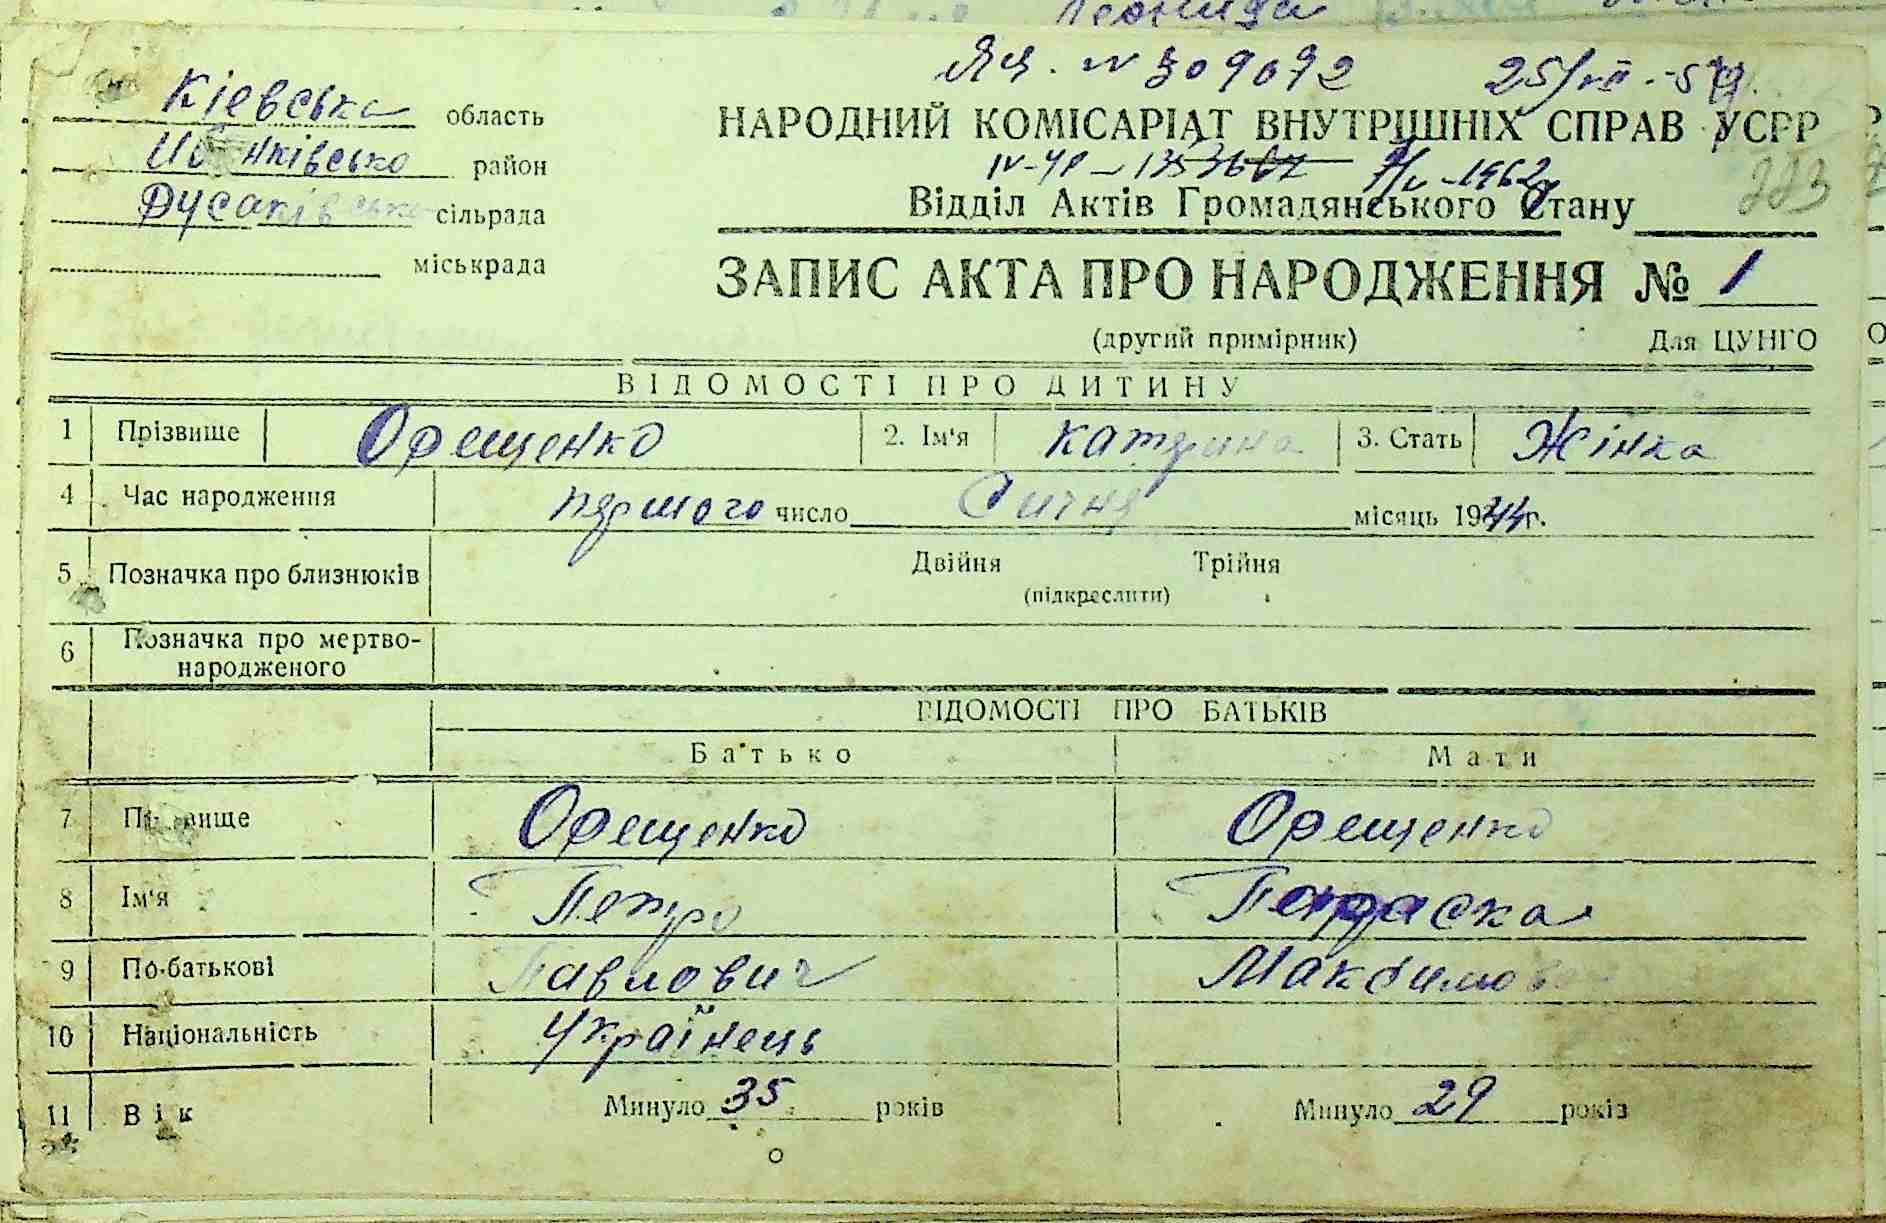 Леонида
Яц. N 309092 25/VII-59.
Кіевська область
НАРОДНИЙ КОМІСАРІАТ ВНУТРІШНІХ СПРАВ УСРР
район
1962
223
Дусаківсько сільрада
Відділ Актів Громадянського Стану
міськрада
ЗАПИС АКТА ПРО НАРОДЖЕННЯ № 1
(другий примірник) Для ЦУНГО
ВІДОМОСТІ ПРО ДИТИНУ
1 Прізвище Орещенко 2. Ім'я Катерина 3. Стать Жінка
4 Час народження першого число Січня місяць 1944г.
5 Позначка про близнюків Двійня Трійня
(підкреслити)
6 Позначка про мертво-
народженого
ВІДОМОСТІ ПРО БАТЬКІВ
Батько Мати
7 Прізвище Орещенко Орещенко
8 Ім'я Петро Параска
9 По-батькові Павлович Максимовна
10 Національність Українець
11 Вік Минуло 35 років Минуло 29 років